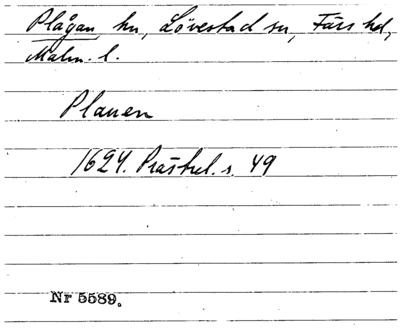 Plågan, hn, Lövestad sn, Färs hd,
Malm. l.
Plauen
1624. Prästrel. s. 49
Nr 5589.